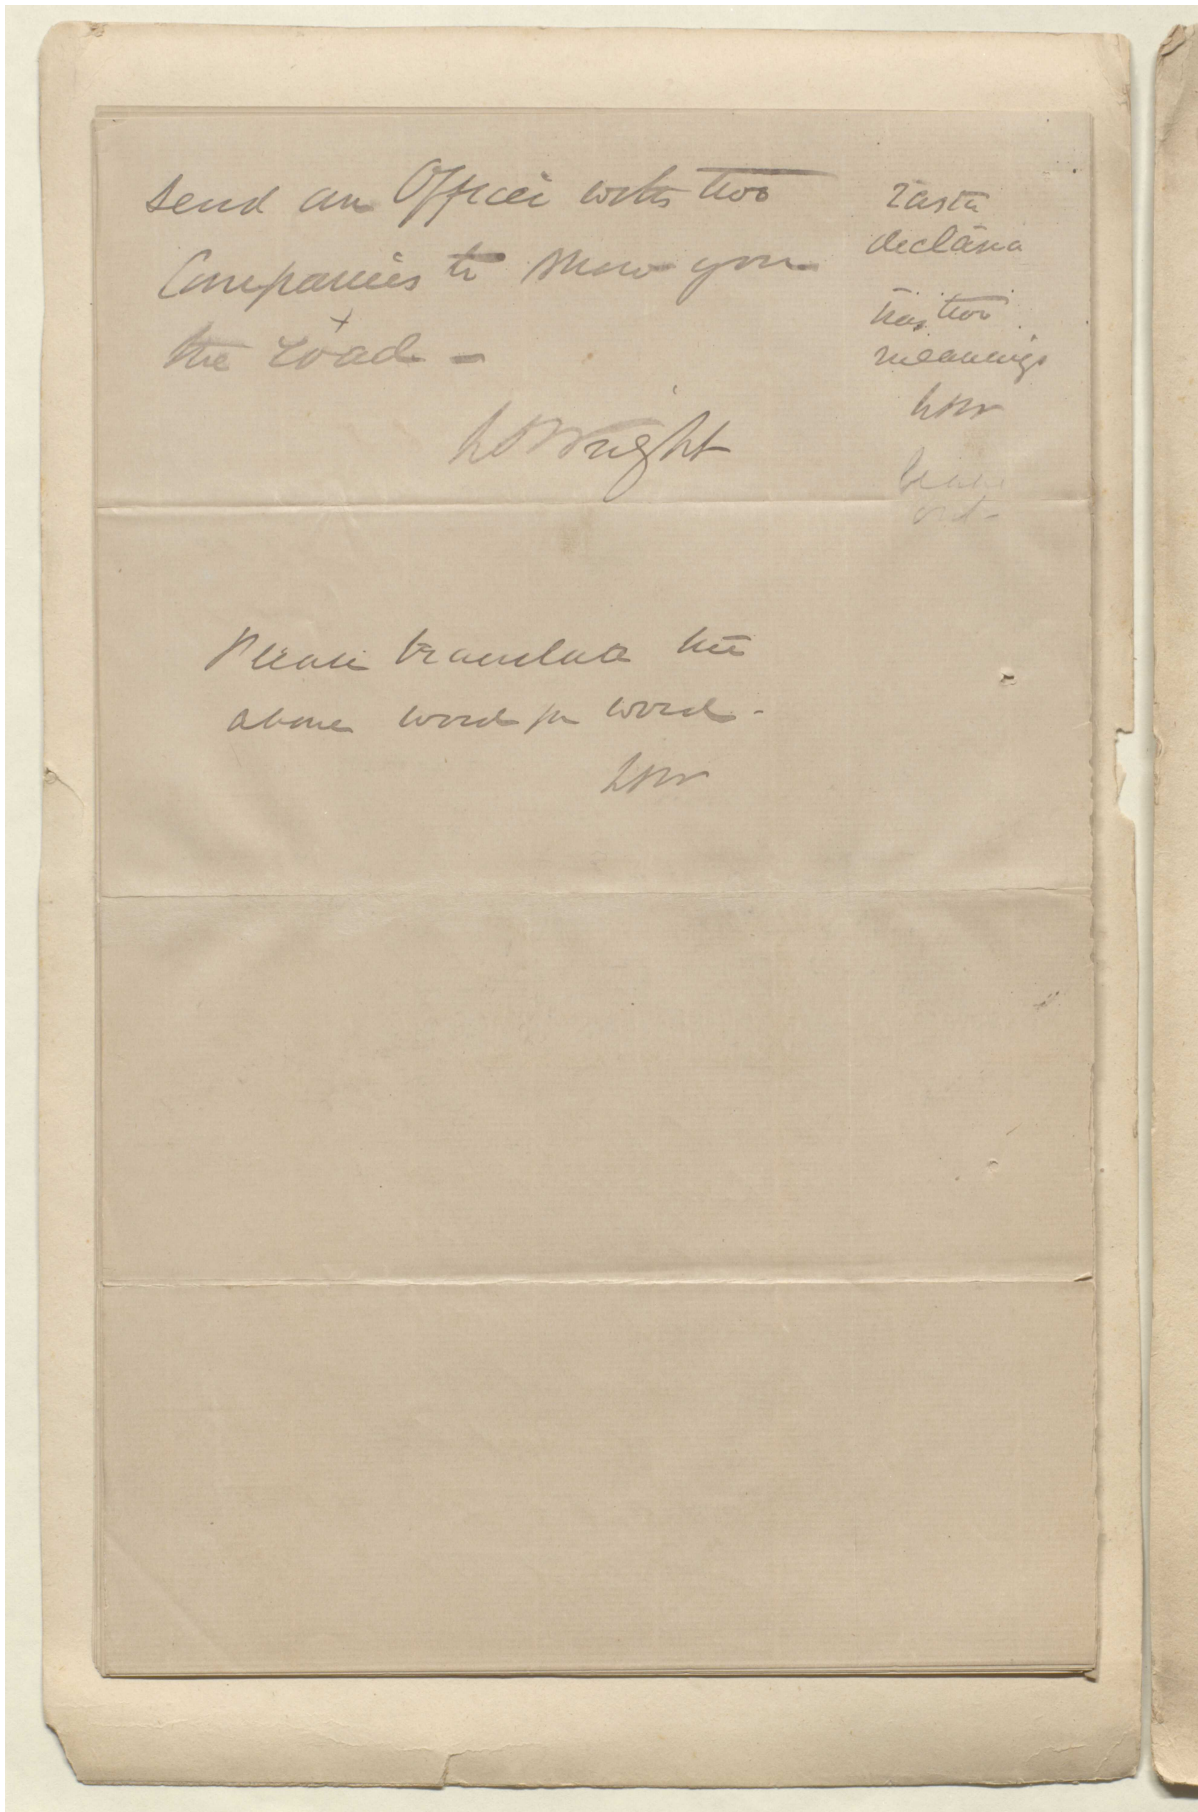 send an Officer with two
Companies to show you
the road -
x
HBWright
rasta
declána
has two
meanings
HBW
out -
Please translate the
above word for word -
HBW